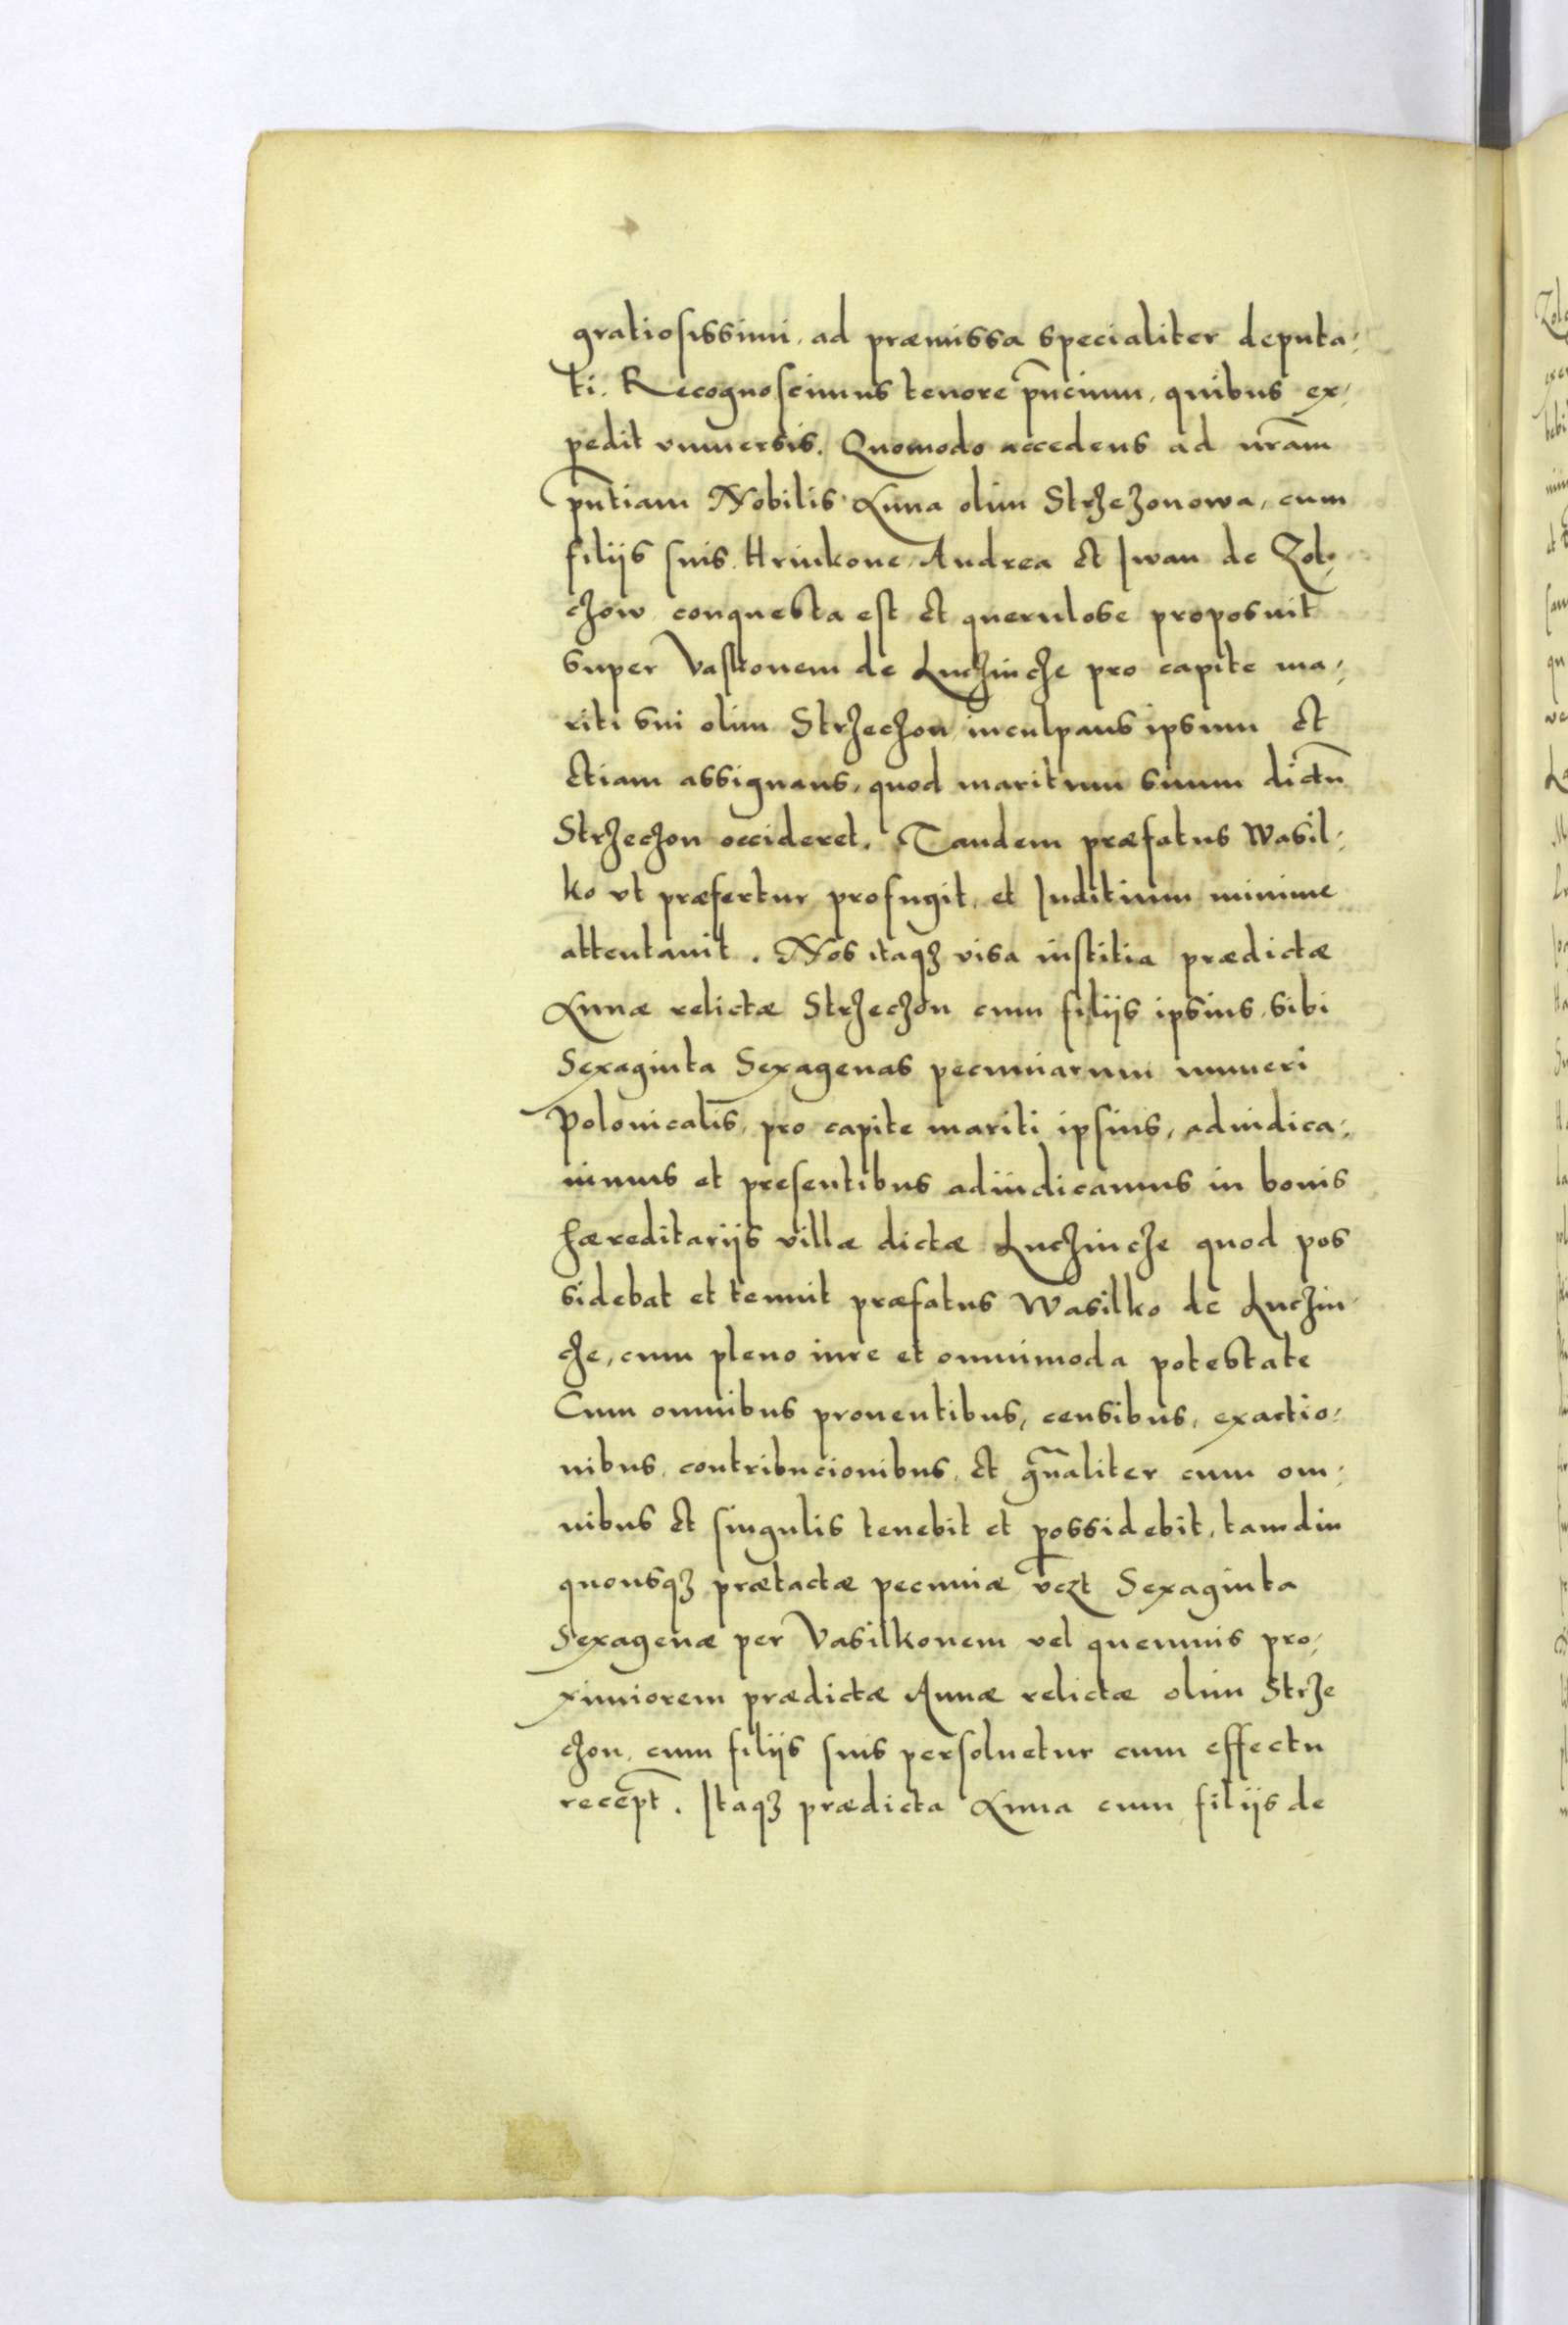 gratiosissimi, ad præmissa specialiter deputa-
ti. Recognoscimus tenore pn̄cium, quibus ex-
pedit vniuersis. Quomodo accedens ad nr̄am
pn̄tiam Nobilis Anna olim Strzezonowa, cum
filijs suis Hrinkone, Andrea et Iwan de Zol-
czow conquesta est et querulose proposuit
super Vaskonem de Luczincze pro capite ma-
riti sui olim Strzeczon inculpans ipsum et
etiam assignans, quod maritum suum dictū
Strzeczon occideret. Tandem præfatus Wasil-
ko vt præfertur profugit, et Iuditium minime
attentauit. Nos itaqȝ visa iustitia prædictæ
Annæ relictæ Strzeczon cum filijs ipsius, sibi
Sexaginta Sexagenas pecuniarum numeri
Polonicalis, pro capite mariti ipsius, adiudica-
uimus et presentibus adiudicamus in bonis
hæreditarijs villæ dictæ Luczincze quod pos
sidebat et tenuit præfatus Wasilko de Luczin-
cze, cum pleno iure et omnimoda potestate
Cum omnibus prouentibus, censibus, exactio-
nibus, contribucionibus, et gn̄aliter cum om-
nibus et singulis tenebit et possidebit, tamdiu
quousqȝ prætactæ pecuniæ vczt Sexaginta
Sexagenæ per Vasilkonem vel quemuis pro-
ximiorem prædictæ Annæ relictæ olim Strze
czon, cum filijs suis persoluetur cum effectu
recept̄. Itaqȝ prædicta Anna cum filijs de